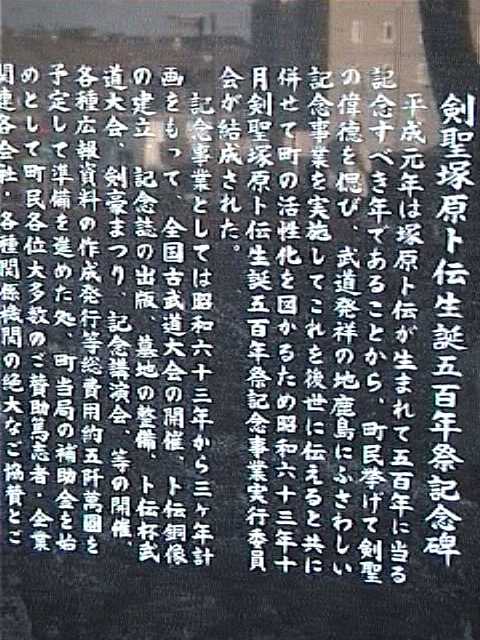 剣聖塚原卜伝生誕五百年祭記念碑
平成元年は塚原卜伝が生まれて五百年に当る
記念すべき年であることから、町民挙げて剣聖
の偉徳を偲び、武道発祥の地鹿島にふさわしい
記念事業を実施してこれを後世に伝えると共に
併せて町の活性化を図るため昭和六十三年十
月剣聖塚原卜伝生誕五百年祭記念事業実行委員
会が結成された。
記念事業としては昭和六十三年から三ヶ年計
画をもって、全国古武道大会の開催、卜伝銅像
の建立、記念誌の出版、墓地の整備、卜伝杯武
道大会、剣豪まつり、記念講演会、等の開催、
各種広報資料の作成発行等総費用約五阡萬圓を
予定して準備を進めた処、町当局の補助金を始
めとして町民各位大多数のご賛助篤志者・企業
関連各会社・各種関係機関の絶大なご協賛とご